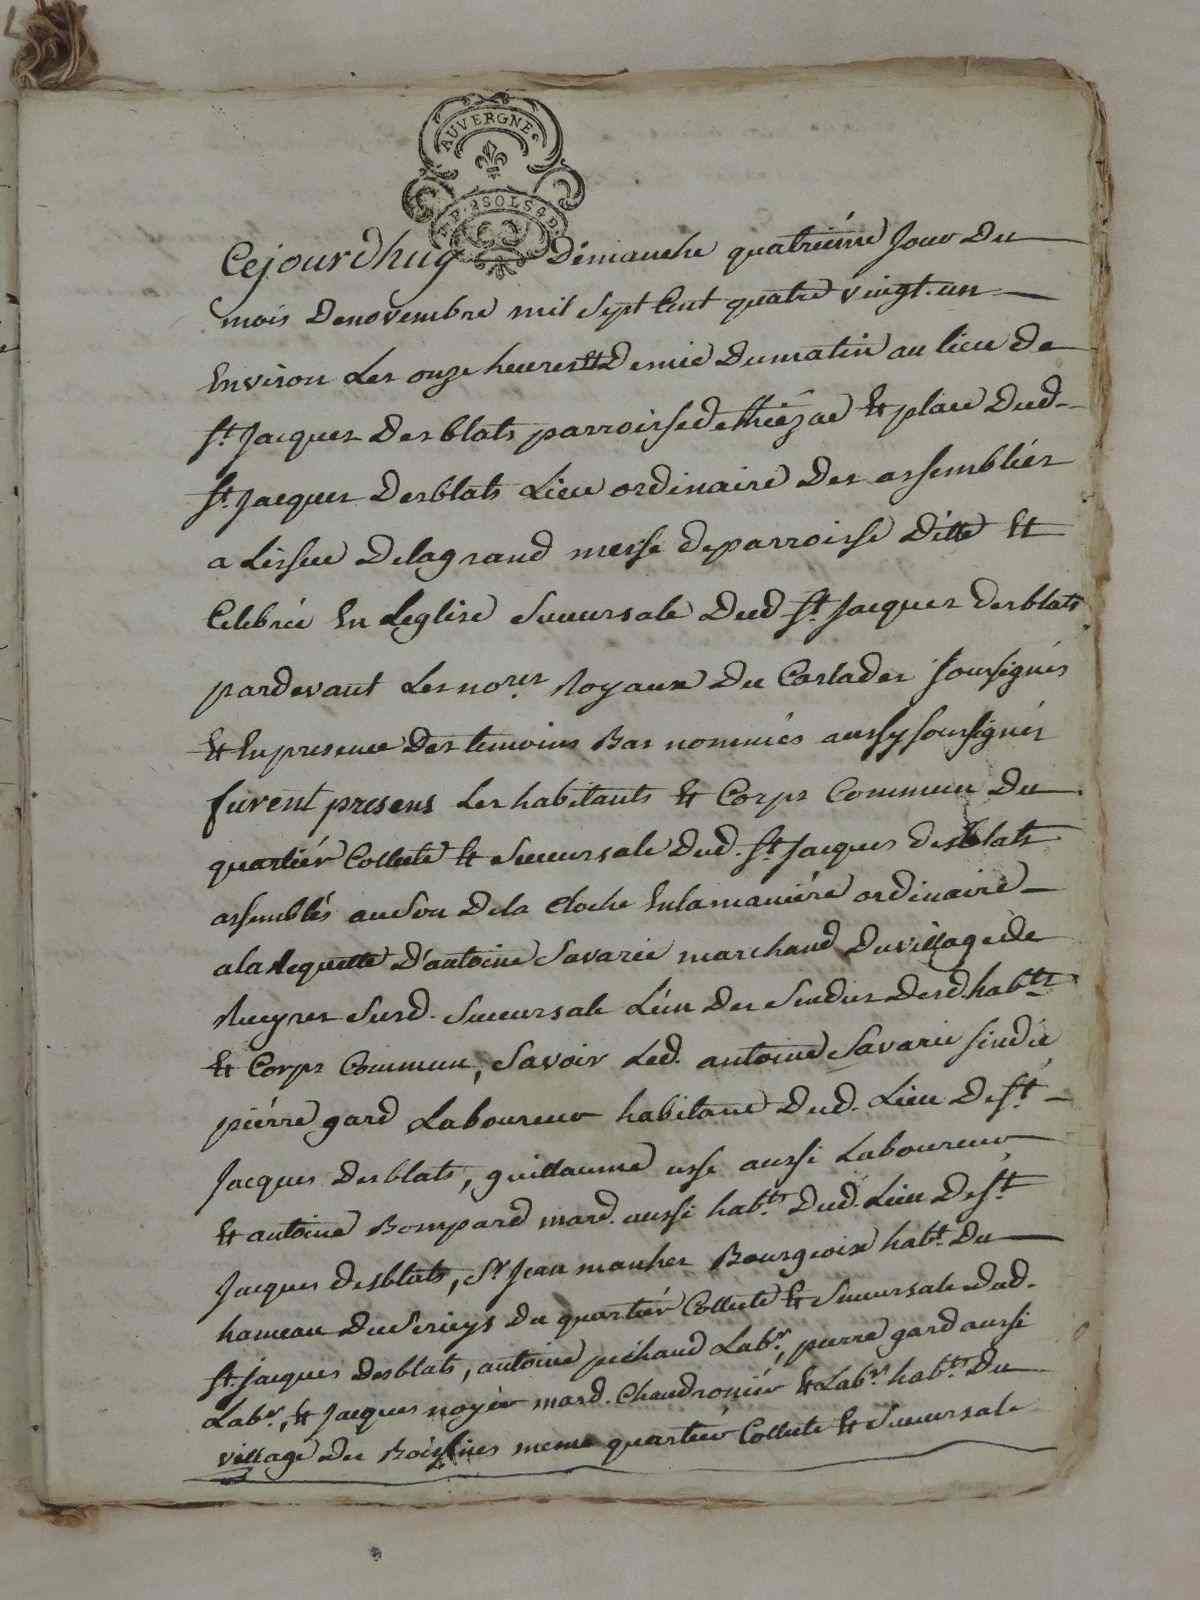 AUVERGNE
F. 2 SOLS 4 D
Cejourdhuy Dimanche quatriéme Jour Du
mois Denovembre mil Sept Cent quatre vingt. un
Environ Les onze heures et Demie Dumatin au lieu de
St. Jacques Desblats parroisse de thiézac Et place Dud.
St. Jacques Desblats Lieu ordinaire Des assemblées
a Lissue Delagrand messe de parroisse Ditte Et
Celebrée En Leglise Succursale Dud St. Jacques desblats
pardevant Les nores. Royaux Du Carladez soussignés
Et En presence Des temoins Bas nommés aussy soussignés
furent presens Les habitants Et Corps Commun Du
quartiér Collecte Et Succursale Dud. St. Jacques desblats
assemblés au Son Dela Cloche En la maniére ordinaire
a la Requette D'antoine Savarie marchand Du village de
Rueyres Susd. Succursale L'un Des Sindics Desd. habts.
Et Corps Commun, Savoir Led. antoine Savarie sindic
piérre gard Laboureur habitant Dud. Lieu De St.
Jacques Desblats, guillaume usse aussi Laboureur
Et antoine Bompard mard. aussi habt. Dud. Lieu De St.
Jacques Desblats, Sr. Jean manhes Bourgeois habt. Du
hameau Du Serieys Du quartiér Collecte Et Succursale Dud.
St. Jacques Desblats, antoine pichaud Labr., pierre gard aussi
Labr., Et Jacques noyér mard. Chaudroniér Et Labr. habts. Du
village Des meme quartiér Collecte Et Succursale